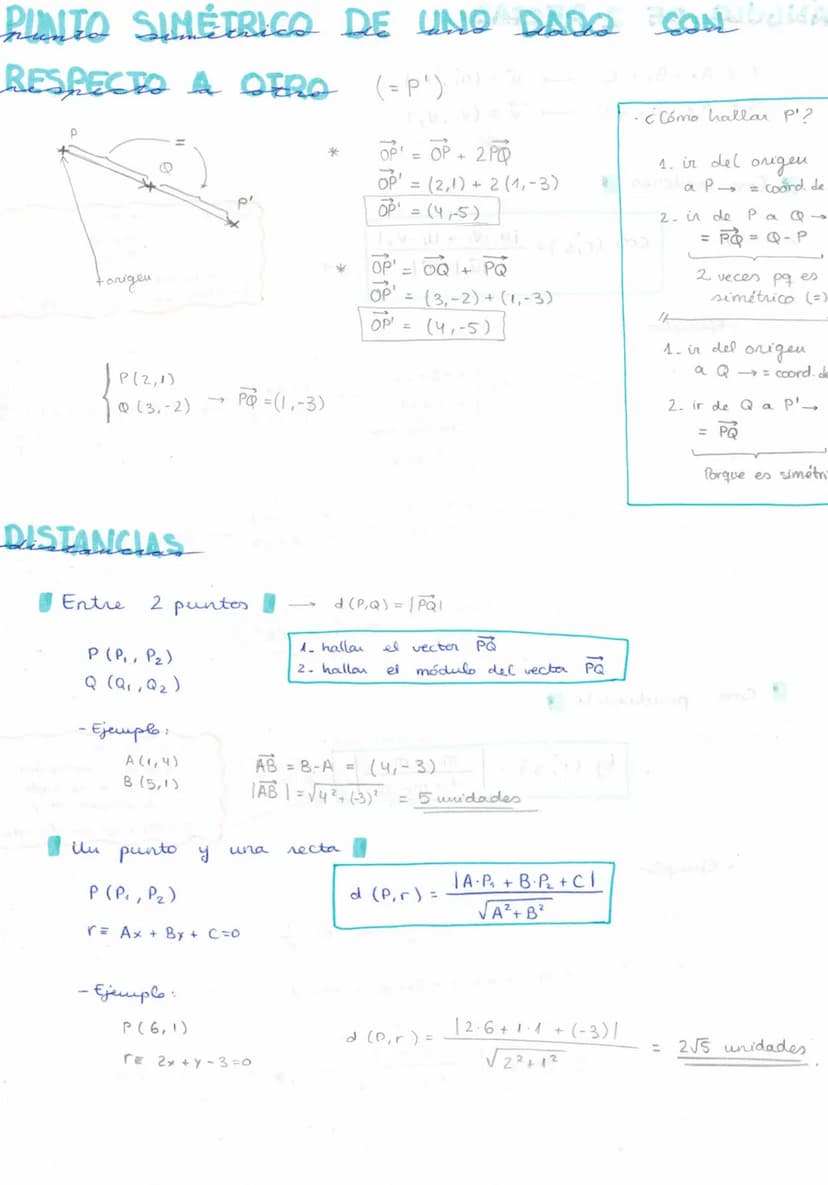 PUNTO SIMÉTRICO DE UNO DADO CON
RESPECTO A OTRO (= P')
P
=
Q
P'
origen
* OP' = OP + 2PQ
OP' = (2,1) + 2(1,-3)
OP' = (4,-5)
* OP' = OQ + PQ
OP' = (3,-2) + (1,-3)
OP' = (4,-5)
P(2,1)
Q(3,-2) → PQ = (1,-3)
· ¿Cómo hallar P'?
1. ir del origen
a P → = coord. de
2. ir de P a Q →
= PQ = Q-P
2 veces pq es
simétrico (=)
1. ir del origen
a Q → = coord. de
2. ir de Q a P' →
= PQ
Porque es simétri
DISTANCIAS
Entre 2 puntos → d(P,Q) = |PQ|
P(P₁, P₂)
Q(Q₁, Q₂)
1. hallar el vector PQ
2. hallar el módulo del vector PQ
- Ejemplo:
A(1,4)
B(5,1)
AB = B-A = (4,-3)
|AB| = √4²+(-3)² = 5 unidades
Un punto y una recta
P(P₁, P₂)
r ≡ Ax + By + C=0
d(P,r) = |A·P₁ + B·P₂ + C| / √A²+B²
- Ejemplo:
P(6,1)
r ≡ 2x + y - 3 = 0
d(P,r) = |2·6 + 1·1 + (-3)| / √2²+1² = 2√5 unidades.